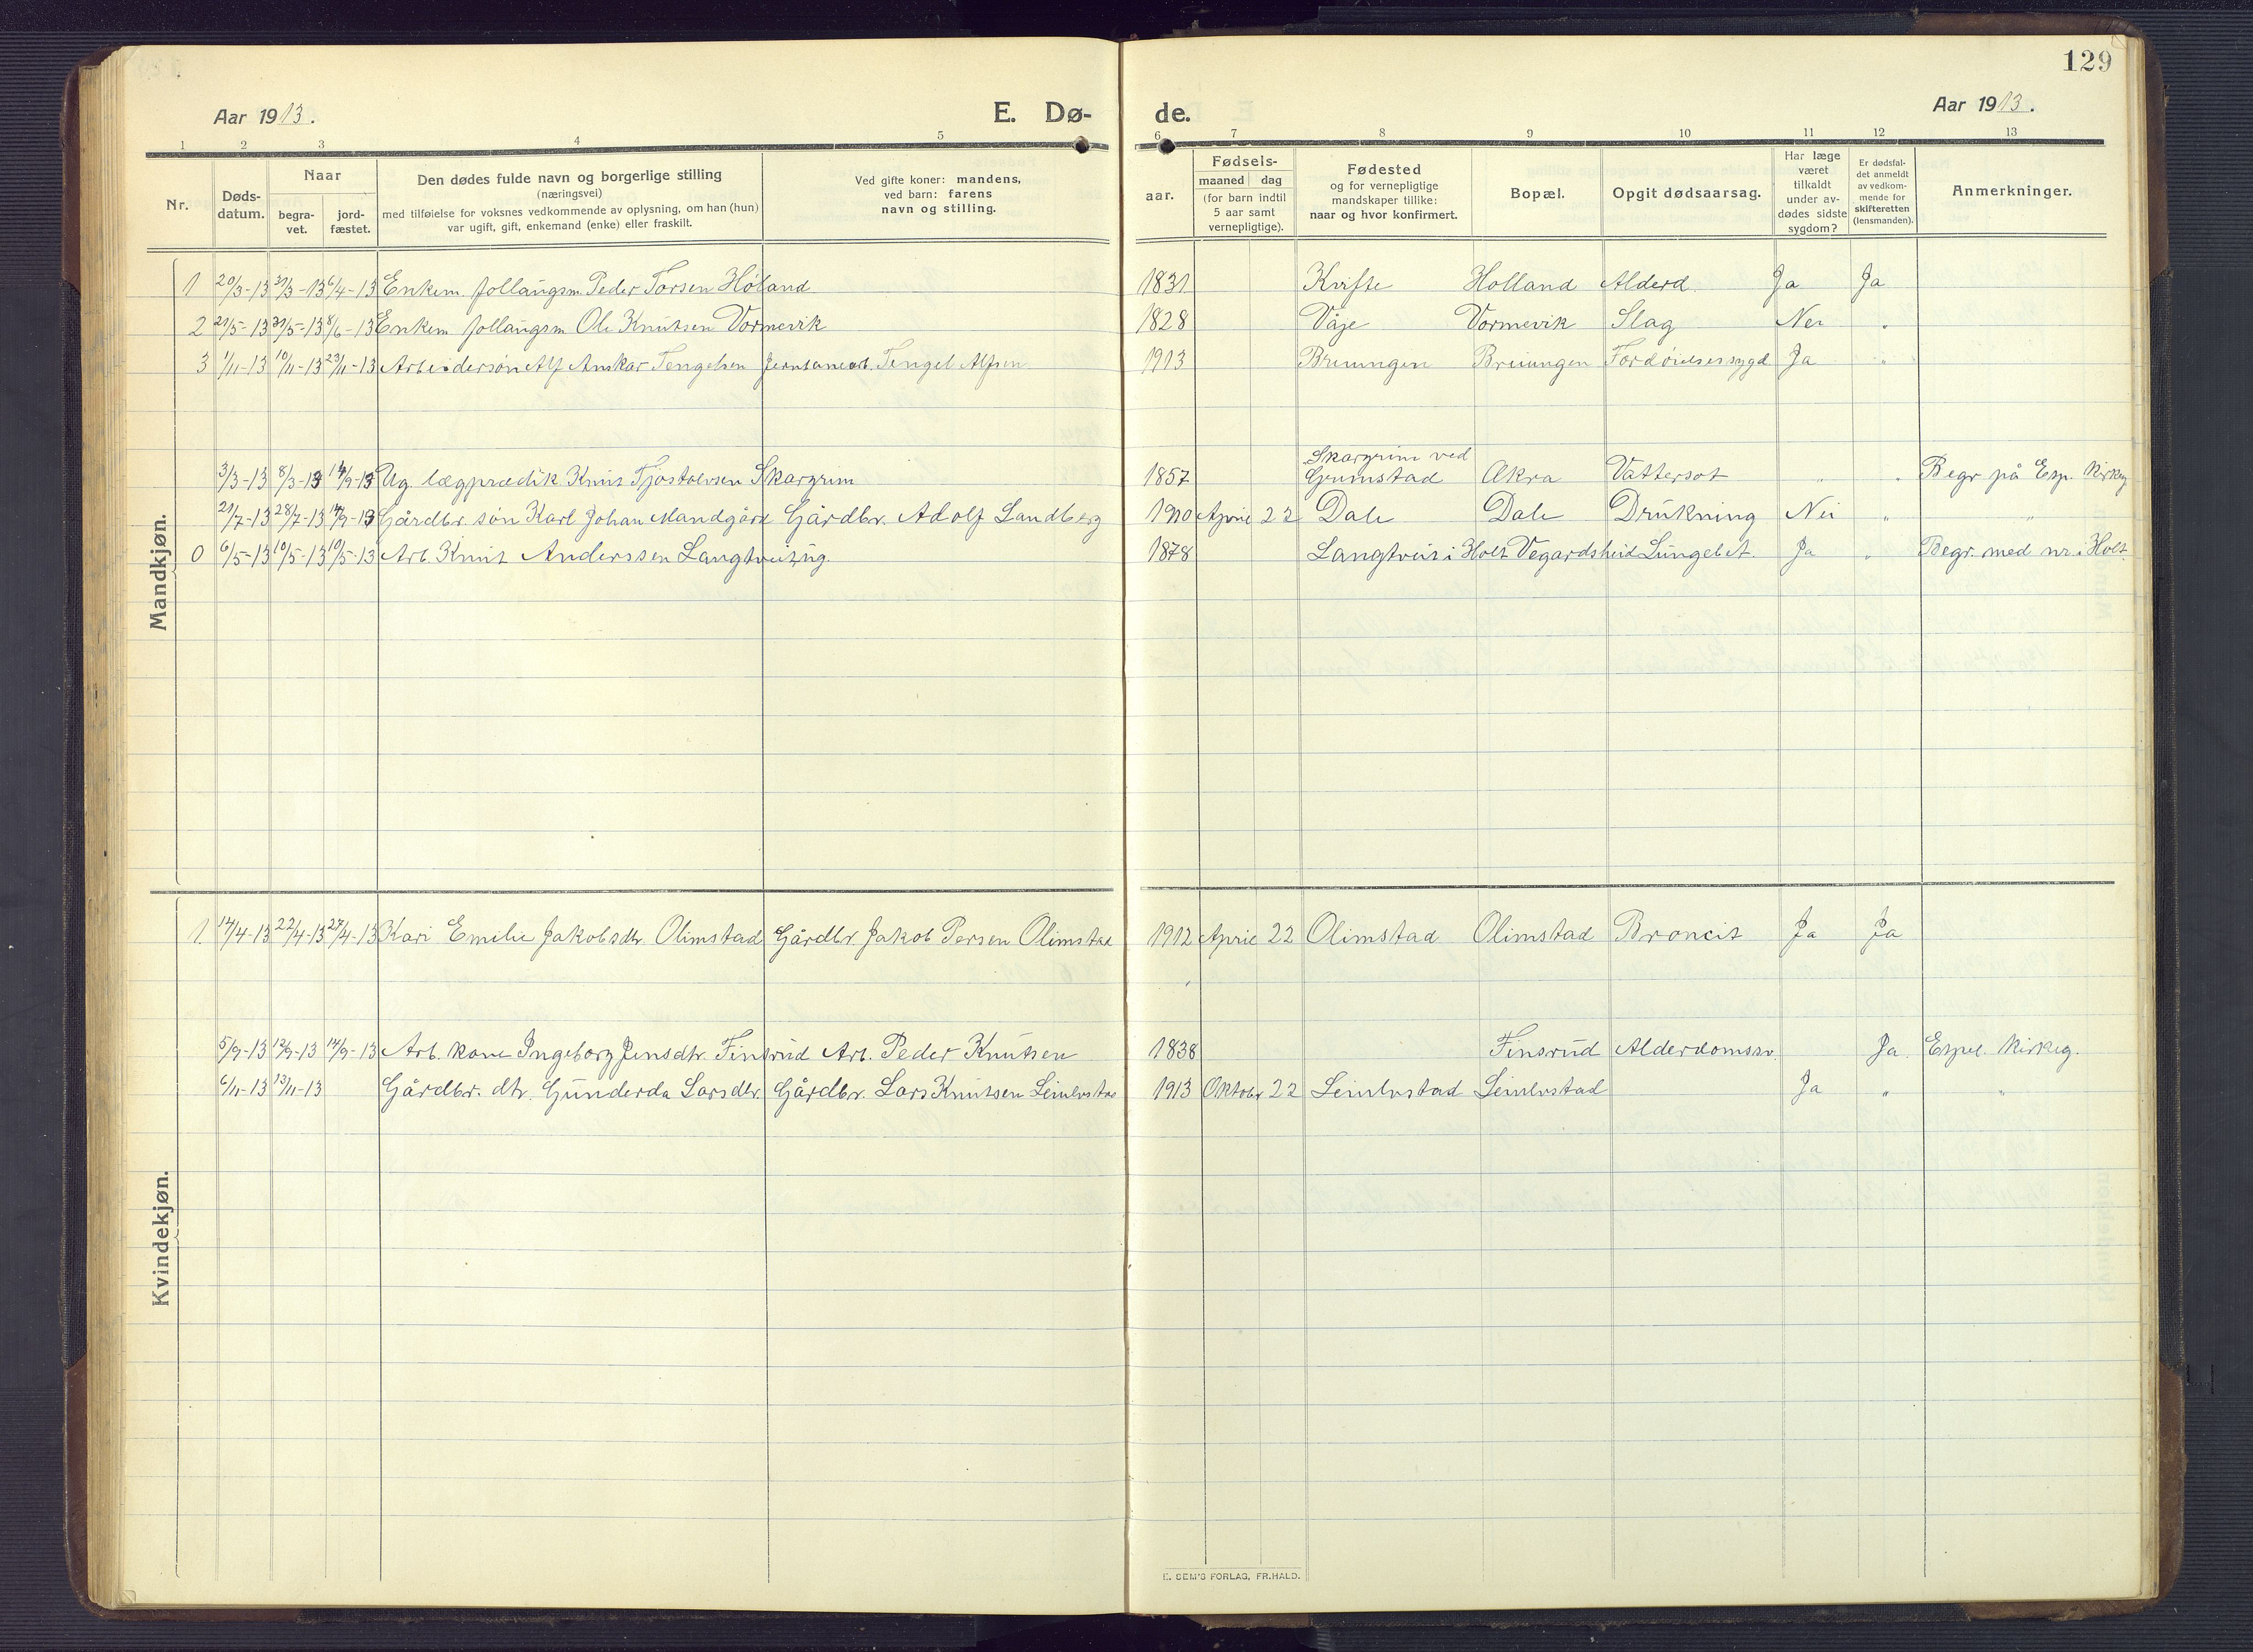 129
Aar 1913. E. Dø- de. Aar 1913.
1 2 3 4 5 6 7 8 9 10 11 12 13
Nr. Døds-datum. Naar begra-vet. jord-fæstet. Den dødes fulde navn og borgerlige stilling (næringsvei) med tilføielse for voksnes vedkommende av oplysning, om han (hun) var ugift, gift, enkemand (enke) eller fraskilt. Ved gifte koner: mandens, ved barn: farens navn og stilling. aar. Fødsels- maaned dag (for barn indtil 5 aar samt vernepligtige). Fødested og for vernepligtige mandskaper tillike: naar og hvor konfirmert. Bopæl. Opgit dødsaarsag. Har læge været tilkaldt under av-dødes sidste sygdom? Er dødsfal-det anmeldt av vedkom-mende for skifteretten (lensmanden). Anmerkninger.
Mandkjøn.
1 20/3-13 31/3-13 6/4-13 Enkem. follaugsm. Peder Torsen Høland 1831 Kvifte Holland Alderd. Ja Ja
2 21/5-13 31/5-13 8/6-13 Enkem follaugsm Ole Knutsen Vormevik 1828 Våje Vormevik Slag Nei "
3 1/11-13 10/11-13 23/11-13 Arbeidersøn Alf Anskar Tengelsen Tengel Alfsen 1913 Breiungen Breiungen Fordøielsessygd Ja "
3/3-13 8/3-13 14/9-13 Ug. lægprædik. Knut Tjøstolvsen Skargrim 1857 Skargrim ved Grimstad Akra Vattersot " " Begr på Esp. Kirkeg
21/7-13 28/7-13 14/9-13 Gårdbr. søn Karl Johan Mandgård Gårdbr. Adolf Landberg 1910 April 22 Dale Dale Drukning Nei " "
0 6/5-13 10/5-13 10/5-13 Arb. Knut Anderssen Langtveit, ug. 1878 Langtveit i Holt Vegardsheid Lungebet. Ja " Begr. med nr. i Holt
Kvindekjøn.
1. 14/4-13 22/4-13 27/4-13 Kari Emilie Jakobsdtr. Olimstad Gårdbr. Jakob Persen Olimstad 1912 April 22 Olimstad Olimstad Broncit Ja Ja
5/9-13 12/9-13 14/9-13 Arb. kone Ingeborg Jensdtr. Finsrud Arb. Peder Knutsen 1838 Finsrud Alderdomssv. Ja. Espel. Kirkeg.
6/11-13 13/11-13 Gårdbr. dtr. Gunderda Larsdtr. Gårdbr. Lars Knutsen 1913 Oktober 22 Ja " "
E. SEM'S FORLAG, FR.HALD.